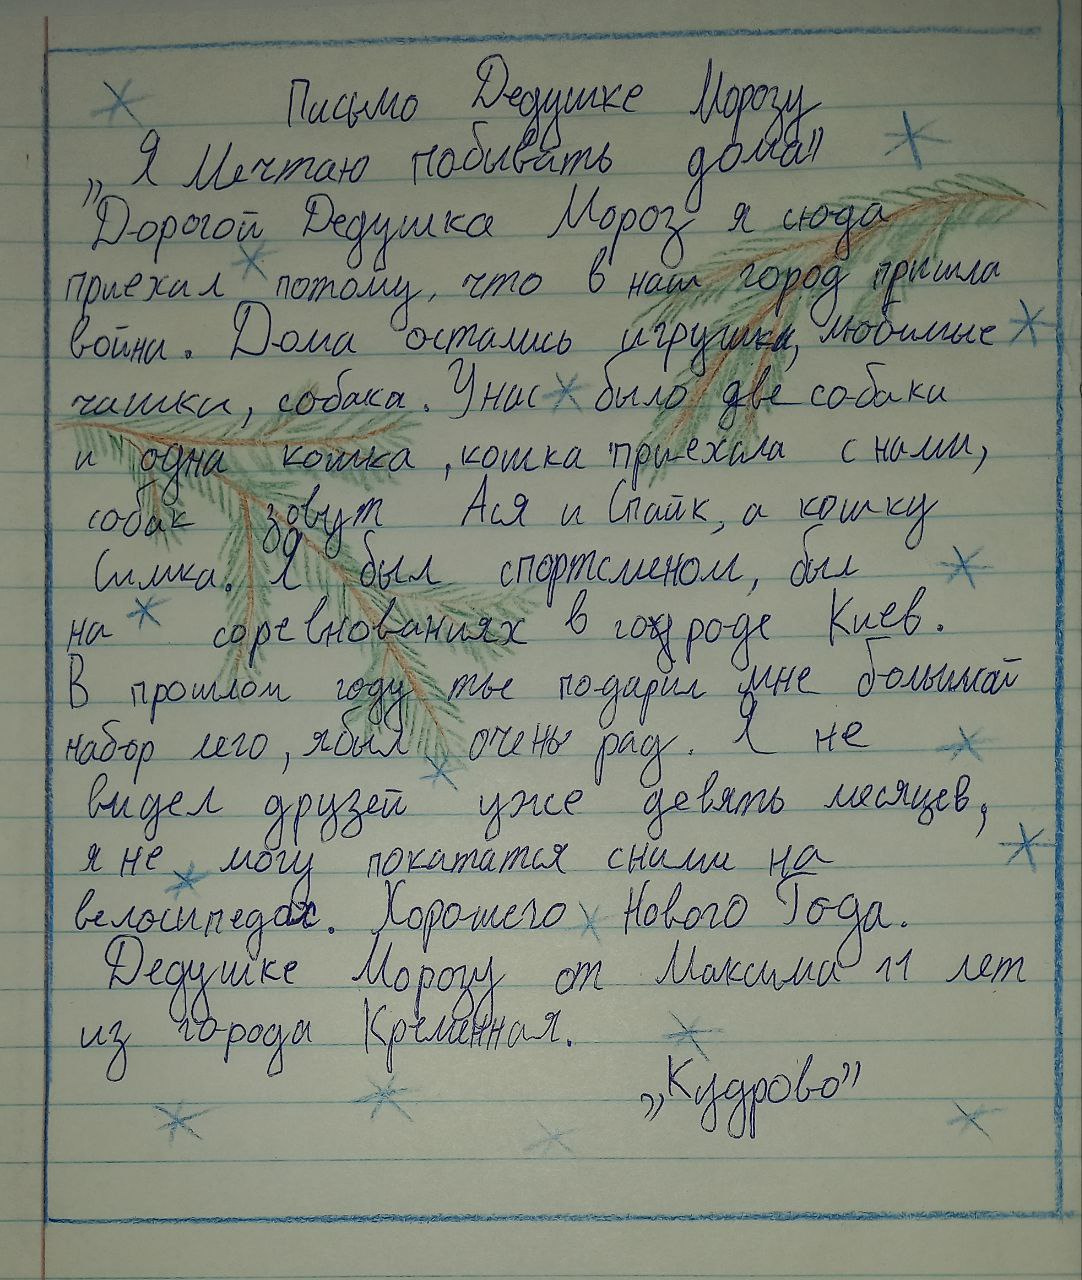 Письмо Дедушке Морозу
„Я Мечтаю побывать дома"
"Дорогой Дедушка Мороз я сюда
приехал потому, что в наш город пришла
война. Дома остались игрушки, любимые
чашки, собака. У нас было две собаки
и одна кошка, кошка приехала с нами,
собак зовут Ася и Спайк, а кошку
Симка. Я был спортсменом, был
на соревнованиях в городе Киев.
В прошлом году ты подарил мне большой
набор лего, я был очень рад. Я не
видел друзей уже девять месяцев,
я не могу покататся сними на
велосипедах. Хорошего Нового Года.
Дедушке Морозу от Максима 11 лет
из города Кременная.
„Кудрово"